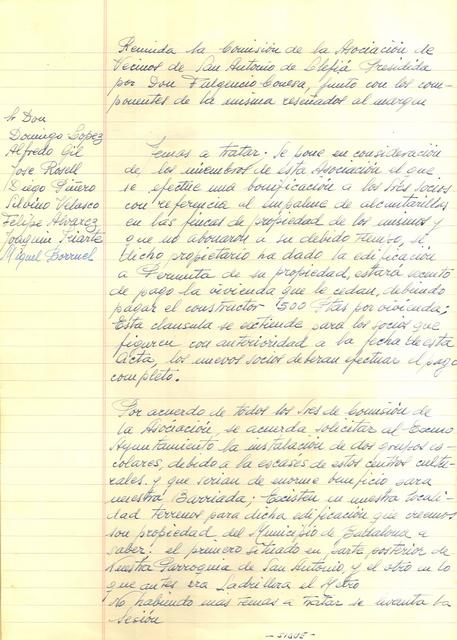 Reunida la Comisión de la Asociación de
Vecinos de San Antonio de Llefiá Presidida
por Don Fulgencio Conesa, junto con los com-
ponentes de la misma reseñados al margen
Sr Don
Domingo López
Alfredo Gil
Jose Rosell
Diego Piñero
Silvino Velasco
Felipe Alvarez
Joaquin Iriarte
Miguel Borruel
Temas a tratar. Se pone en consideración
de los miembros de esta Asociación el que
se efectue una bonificación a los Sres Socios
con referencia al empalme de alcantarillas
en las fincas de propiedad de los mismos y
que no abonaron a su debido tiempo, si
dicho propietario ha dado la edificación
a Permuta de su propiedad, estará exento
de pago la vivienda que le cedan, debiendo
pagar el constructor 1500 Ptas por vivienda;
Esta clausula se extiende para los socios que
figuren con anterioridad a la fecha de esta
Acta, los nuevos socios deberan efectuar el pago
completo.
Por acuerdo de todos los Sres de Comisión de
la Asociación, se acuerda solicitar al Excmo
Ayuntamiento la instalación de dos grupos es-
colares, debido a la escases de estos centros cultu-
rales y que serian de enorme beneficio para
nuestra Barriada; Existen en nuestra locali-
dad terrenos para dicha edificación que creemos
son propiedad del Municipio de Badalona a
saber: el primero situado en parte posterior de
Nuestra Parroquia de San Antonio, y el otro en lo
que antes era Ladrillera el Metro
No habiendo mas temas a tratar se levanta la
Sesión
- SIGUE -